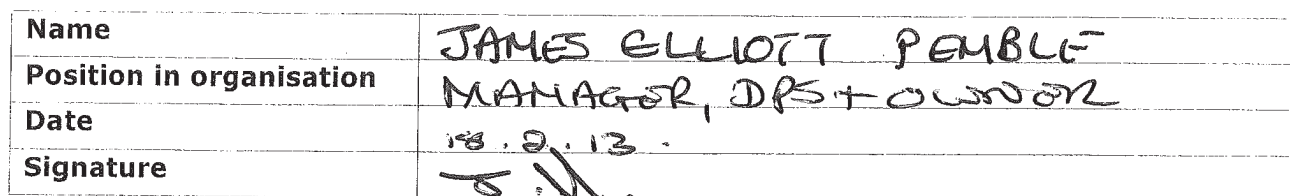 Name JAMES ELLIOTT PEMBLE
Position in organisation MANAGER, DPS + OWNER
Date 18.2.13.
Signature